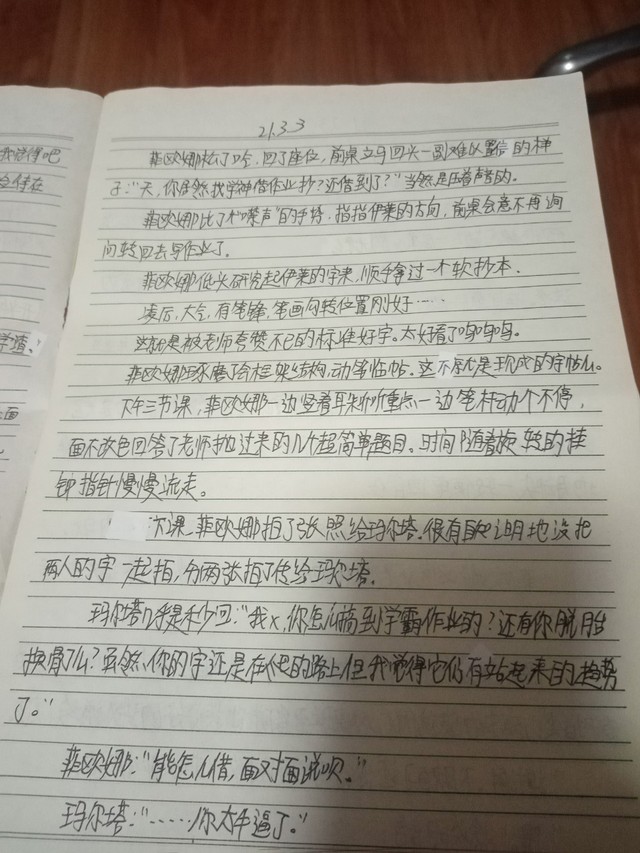 我觉得吧
21.3.3
菲欧娜松了口气，回了座位，前桌立马回头一副难以置信的样
子：“天，你居然找学神借作业抄？还借到了？”当然是压着声音的。
菲欧娜比了个“噤声”的手势，指指伊莱的方向，前桌会意不再询
问转回去写作业了。
菲欧娜低头研究起伊莱的字来，顺手拿过一个软抄本。
凌厉，大气，有笔锋，笔画间转位置刚好……
这就是被老师夸赞不已的标准好字。太好看了呜呜呜。
菲欧娜琢磨了会框架结构，动笔临帖。这不就是现成的字帖么。
下午三节课，菲欧娜一边竖着耳朵听重点一边笔杆动个不停，
面不改色回答了老师抛过来的几个超简单题目。时间随着旋转的挂
钟指针慢慢流走。
下课，菲欧娜拍了张照给玛尔塔。很有自知之明地没把
两人的字一起拍，分两张拍了传给玛尔塔。
玛尔塔几乎是秒回：“我x，你怎么搞到学霸作业的？还有你脱胎
换骨了么？虽然你的字还是在的路上但我觉得它们有站起来的趋势
了。”
菲欧娜：“能怎么借，面对面说呗。”
玛尔塔：“……你太牛逼了。”